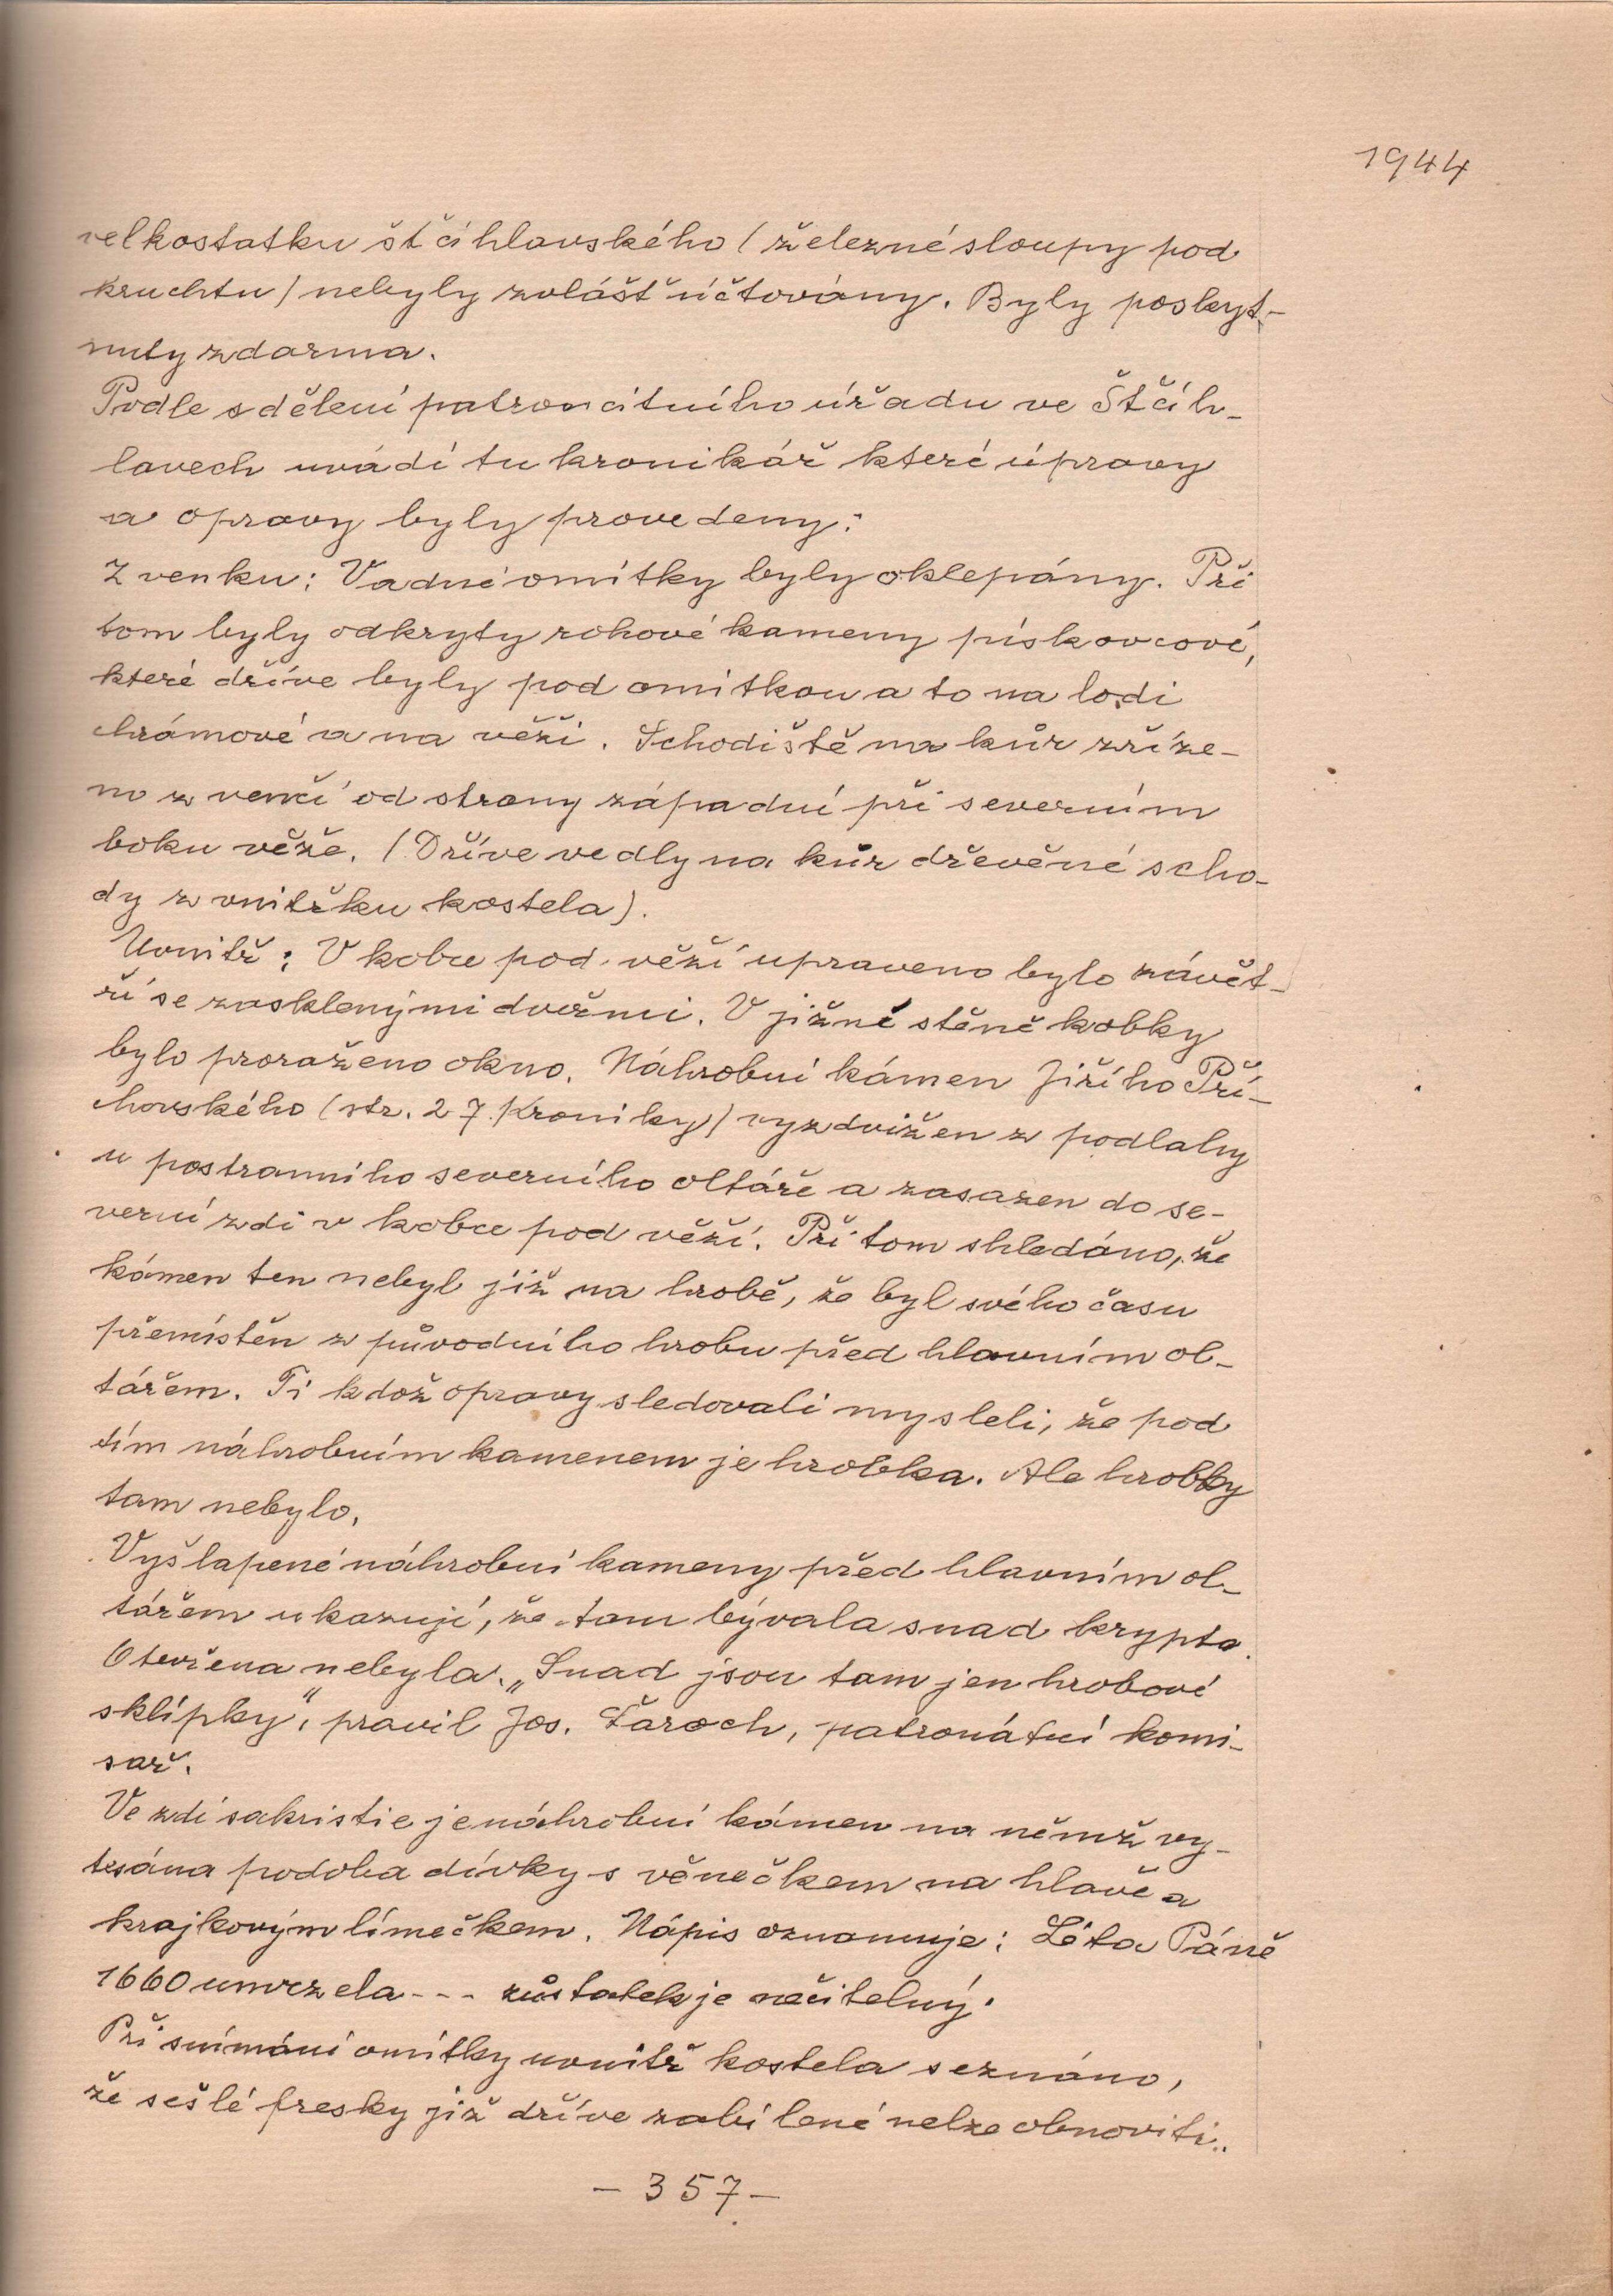 1944
velkostatku štčihlavského (železné sloupy pod
kruchtu) nebyly zvlášť účtovány. Byly poskyt-
nuty zdarma.
Podle sdělení patronátního úřadu ve Štčih-
lavech uvádí tu kronikář které úpravy
a opravy byly provedeny:
Z venku: Vadné omítky byly oklepány. Při
tom byly odkryty rohové kameny pískovcové,
které dříve byly pod omítkou a to na lodi
chrámové a na věži. Schodiště na kůr zříze-
no z venčí od strany západní při severním
boku věže. (Dříve vedly na kůr dřevěné scho-
dy z vnitřku kostela).
Uvnitř: V kobce pod věží upraveno bylo závět-
ří se zasklenými dveřmi. V jižné stěně kobky
bylo proraženo okno. Náhrobní kámen Jiřího Pří-
chovského (str. 27. Kroniky) vyzdvižen z podlahy
u postranního severního oltáře a zasazen do se-
verní zdi v kobce pod věží. Při tom shledáno, že
kámen ten nebyl již na hrobě, že byl svého času
přemístěn z původního hrobu před hlavním ol-
tářem. Ti kdož opravy sledovali mysleli, že pod
tím náhrobním kamenem je hrobka. Ale hrobky
tam nebylo.
Vyšlapené náhrobní kameny před hlavním ol-
tářem ukazují, že tam bývala snad krypta.
Otevřena nebyla. „Snad jsou tam jen hrobové
sklípky“, pravil Jos. Šaroch, patronátní komi-
sař.
Ve zdi sakristie je náhrobní kámen na němž vy-
tesána podoba dívky s věnečkem na hlavě a
krajkovým límečkem. Nápis oznamuje: Léta Páně
1660 umrzela --- zůstatek je nečitelný.
Při snímání omítky uvnitř kostela seznáno,
že sešlé fresky již dříve zabílené nelze obnoviti..
- 357 -